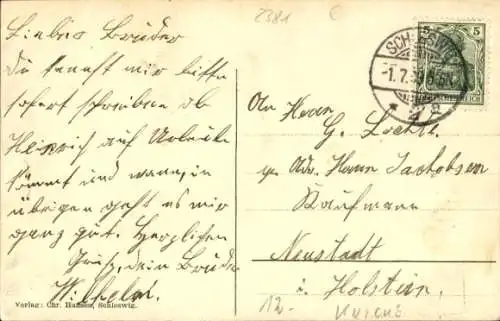 2381
Liebes Bruder
Du kannst mir bitte
sofort schreiben ob
Heinrich auf Urlaub
kommt und wann, im
übrigen geht es mir
ganz gut. Herzlichen
Gruß, dein Bruder
Wilhelm.
Verlag: Chr. Hansen, Schleswig.
SCHLESWIG
-1.7. 5-6N.
5
An Herrn
G.
p. Adr. Herrn Jacobsen
Kaufmann
Neustadt
i. Holstein.
12.-